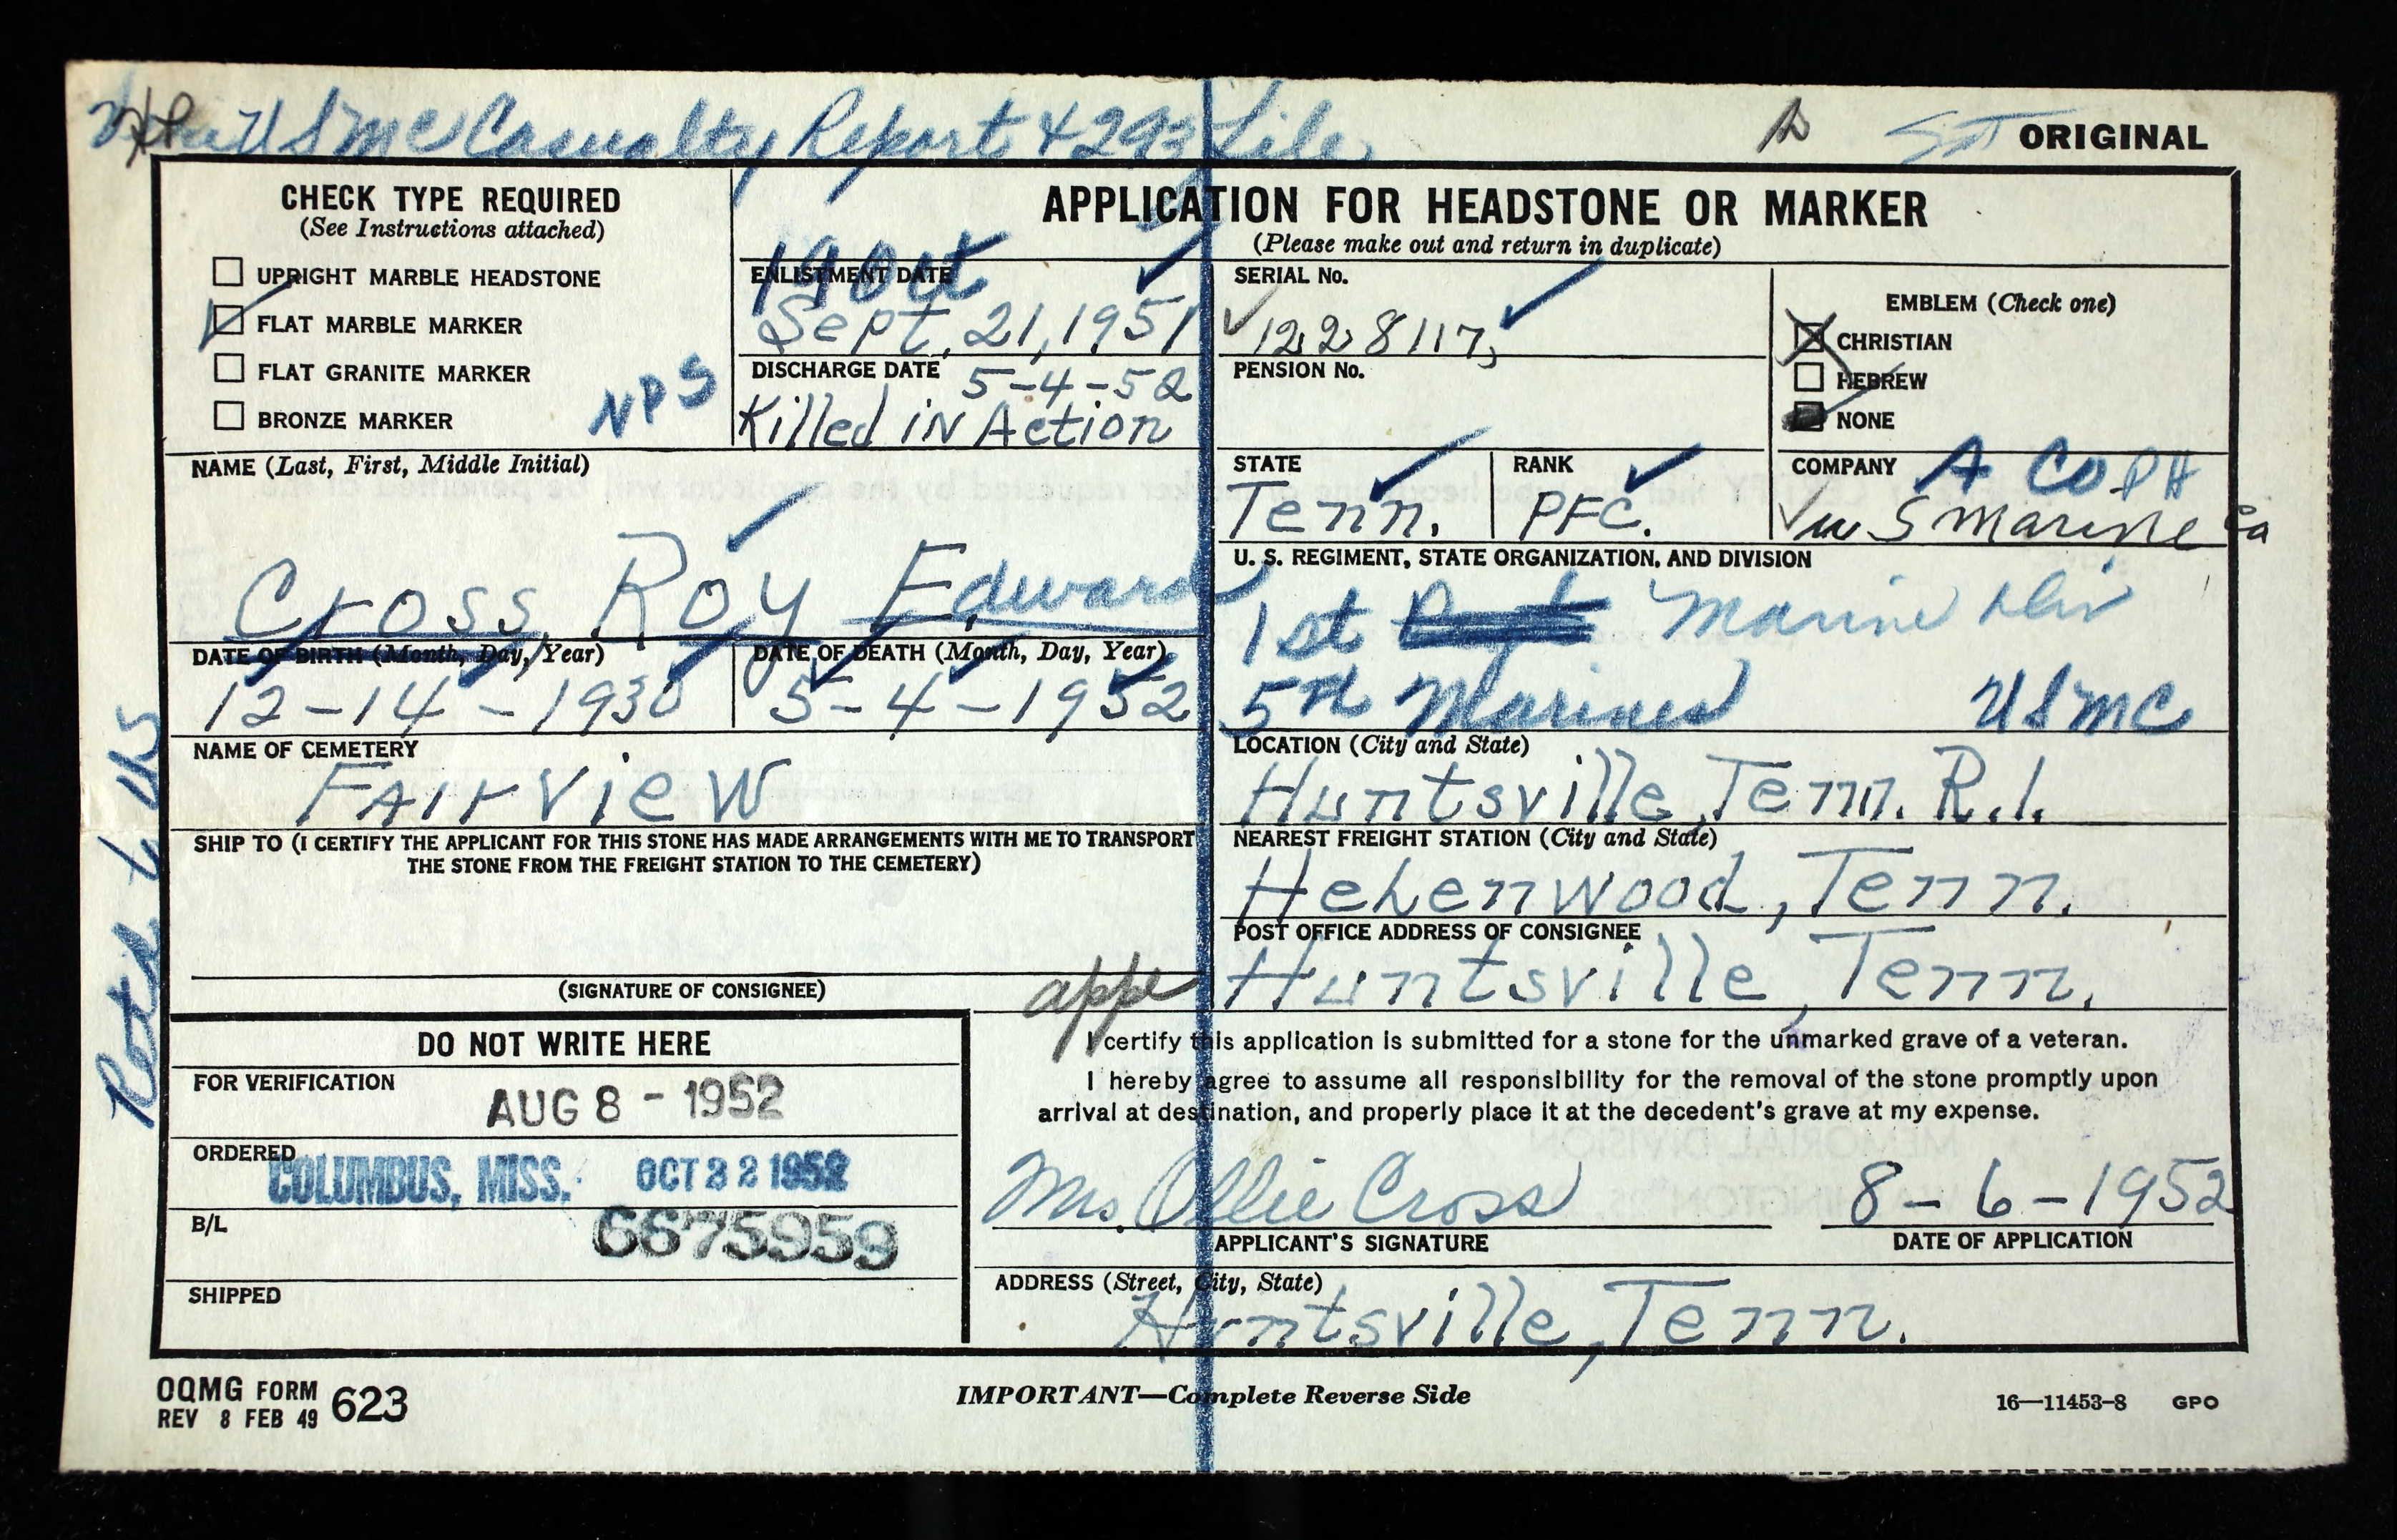 USMC Casualty Report & 293 File
ORIGINAL
CHECK TYPE REQUIRED
(See Instructions attached)
UPRIGHT MARBLE HEADSTONE
FLAT MARBLE MARKER
FLAT GRANITE MARKER
BRONZE MARKER
NPS
APPLICATION FOR HEADSTONE OR MARKER
(Please make out and return in duplicate)
19 Oct
ENLISTMENT DATE
Sept. 21, 1951
DISCHARGE DATE 5-4-52
Killed in Action
SERIAL No.
1228117
PENSION No.
EMBLEM (Check one)
CHRISTIAN
HEBREW
NONE
NAME (Last, First, Middle Initial)
Cross, Roy Edward
STATE
Tenn.
RANK
PFC.
COMPANY A Co PH
U S Marine Co
U. S. REGIMENT, STATE ORGANIZATION, AND DIVISION
1st Marine Div
5th Marines USMC
DATE OF BIRTH (Month, Day, Year)
12-14-1930
DATE OF DEATH (Month, Day, Year)
5-4-1952
NAME OF CEMETERY
FAirvieW
LOCATION (City and State)
Huntsville, Tenn. R.1.
SHIP TO (I CERTIFY THE APPLICANT FOR THIS STONE HAS MADE ARRANGEMENTS WITH ME TO TRANSPORT
THE STONE FROM THE FREIGHT STATION TO THE CEMETERY)
(SIGNATURE OF CONSIGNEE)
NEAREST FREIGHT STATION (City and State)
Helenwood, Tenn.
POST OFFICE ADDRESS OF CONSIGNEE
Huntsville, Tenn.
appe
I certify this application is submitted for a stone for the unmarked grave of a veteran.
I hereby agree to assume all responsibility for the removal of the stone promptly upon
arrival at destination, and properly place it at the decedent's grave at my expense.
DO NOT WRITE HERE
FOR VERIFICATION
AUG 8 - 1952
ORDERED
COLUMBUS, MISS. OCT 22 1952
B/L
6675959
SHIPPED
Mrs. Ollie Cross
APPLICANT'S SIGNATURE
8-6-1952
DATE OF APPLICATION
ADDRESS (Street, City, State)
Huntsville, Tenn.
OQMG FORM 623
REV 8 FEB 49
IMPORTANT—Complete Reverse Side
16—11453-8 GPO